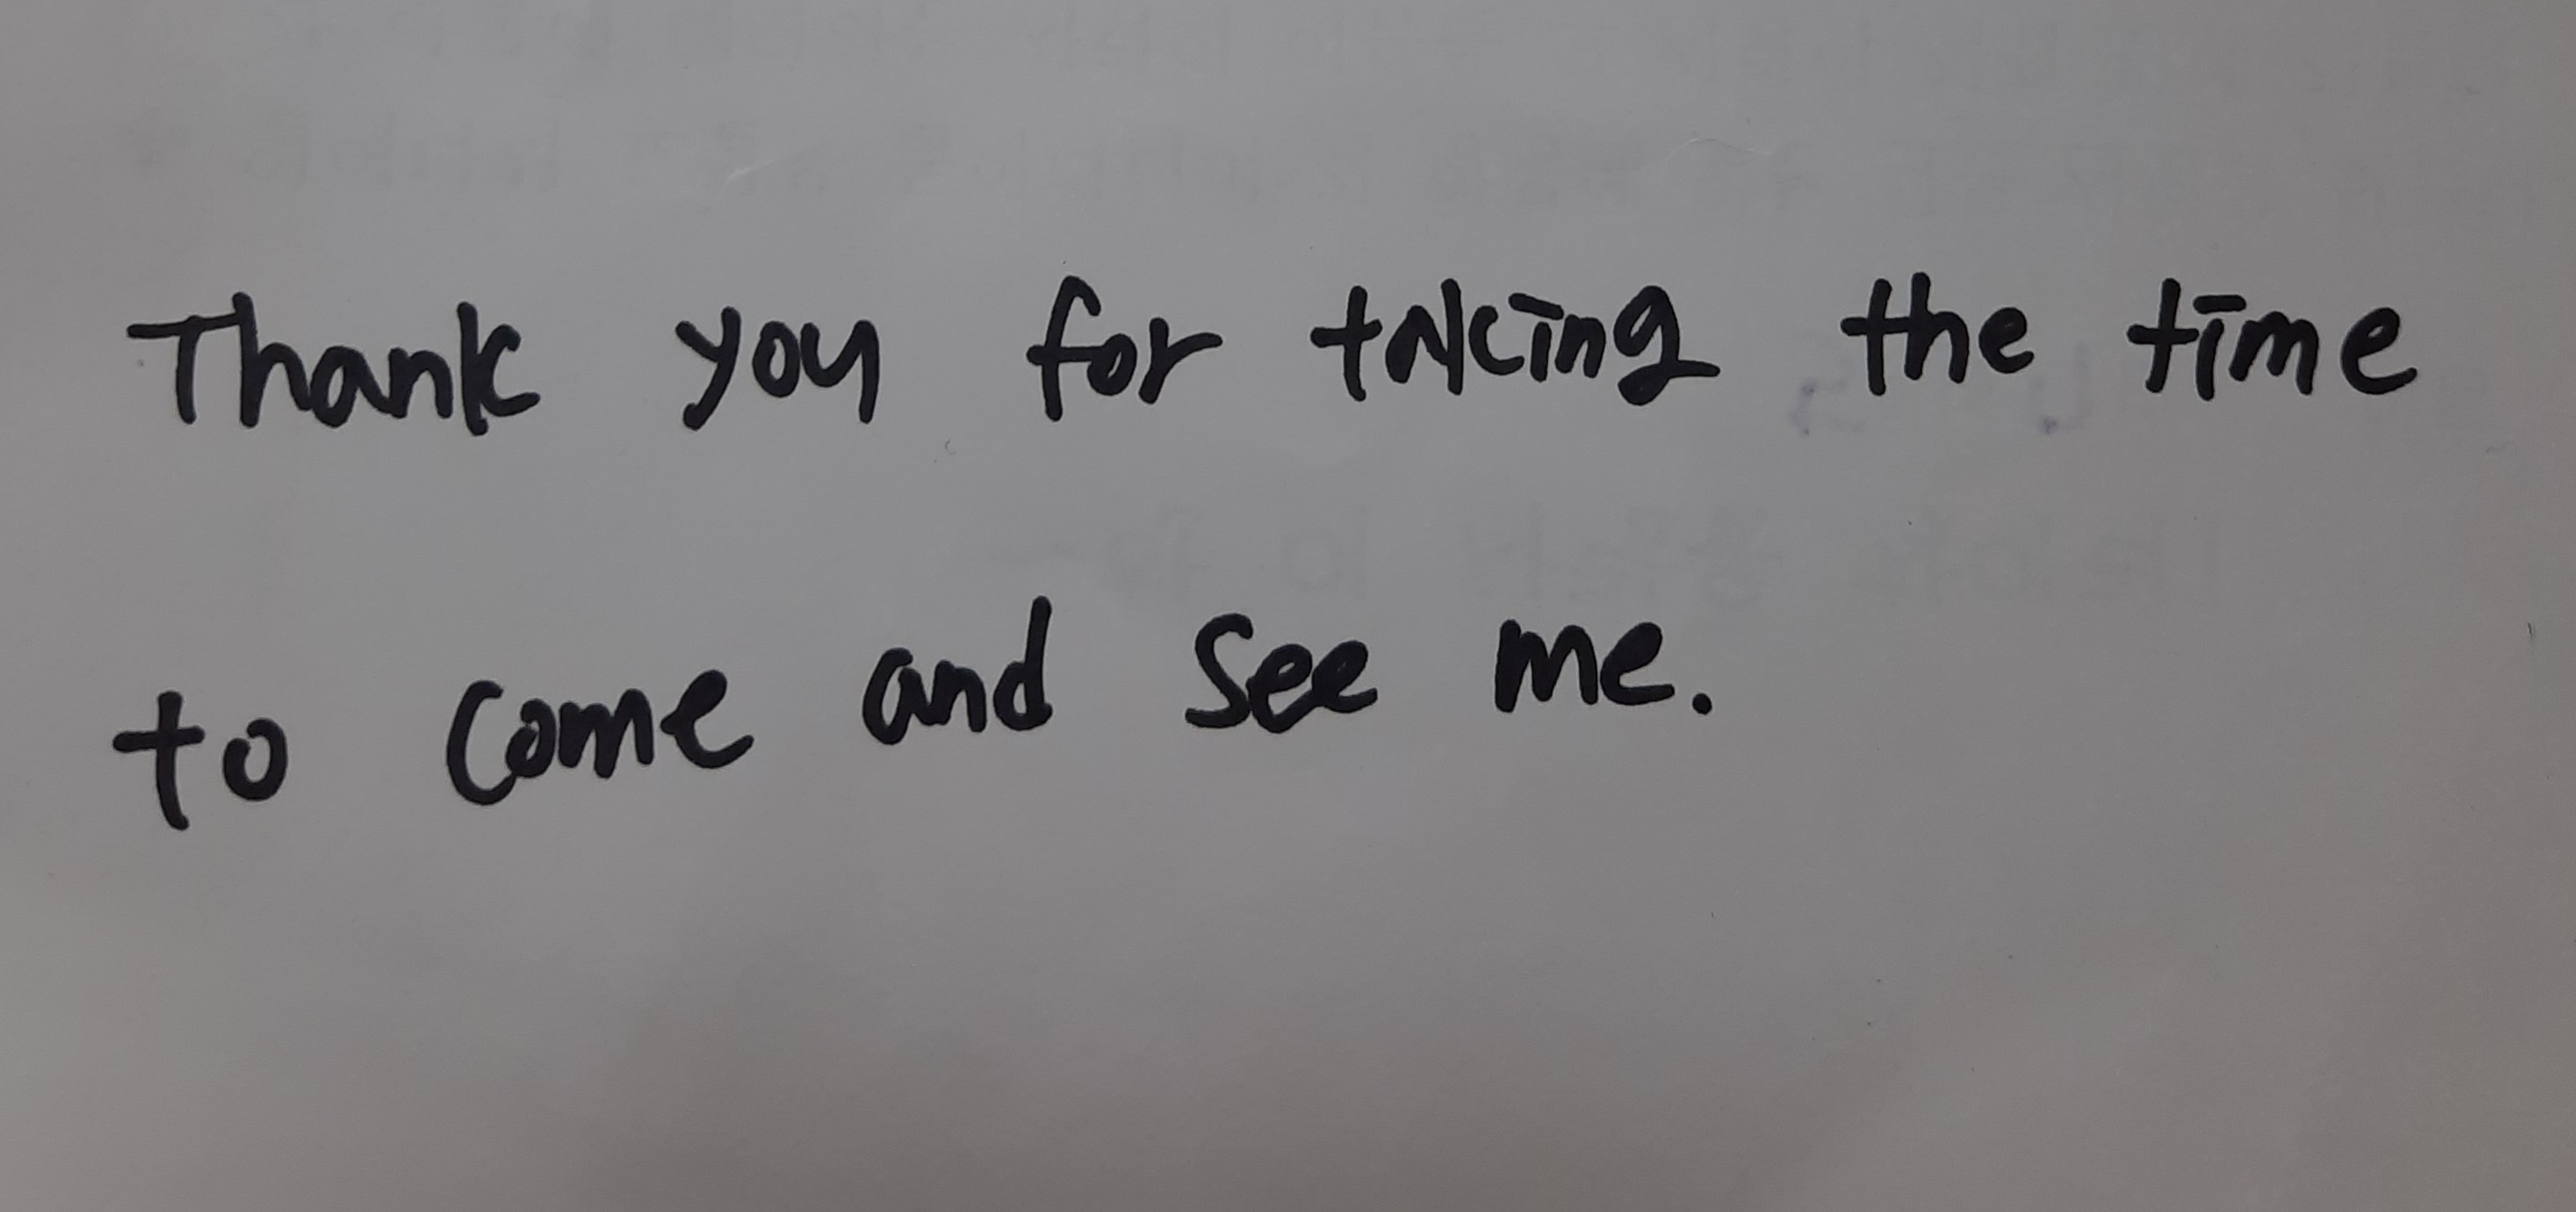 Thank you for taking the time
to come and see me.